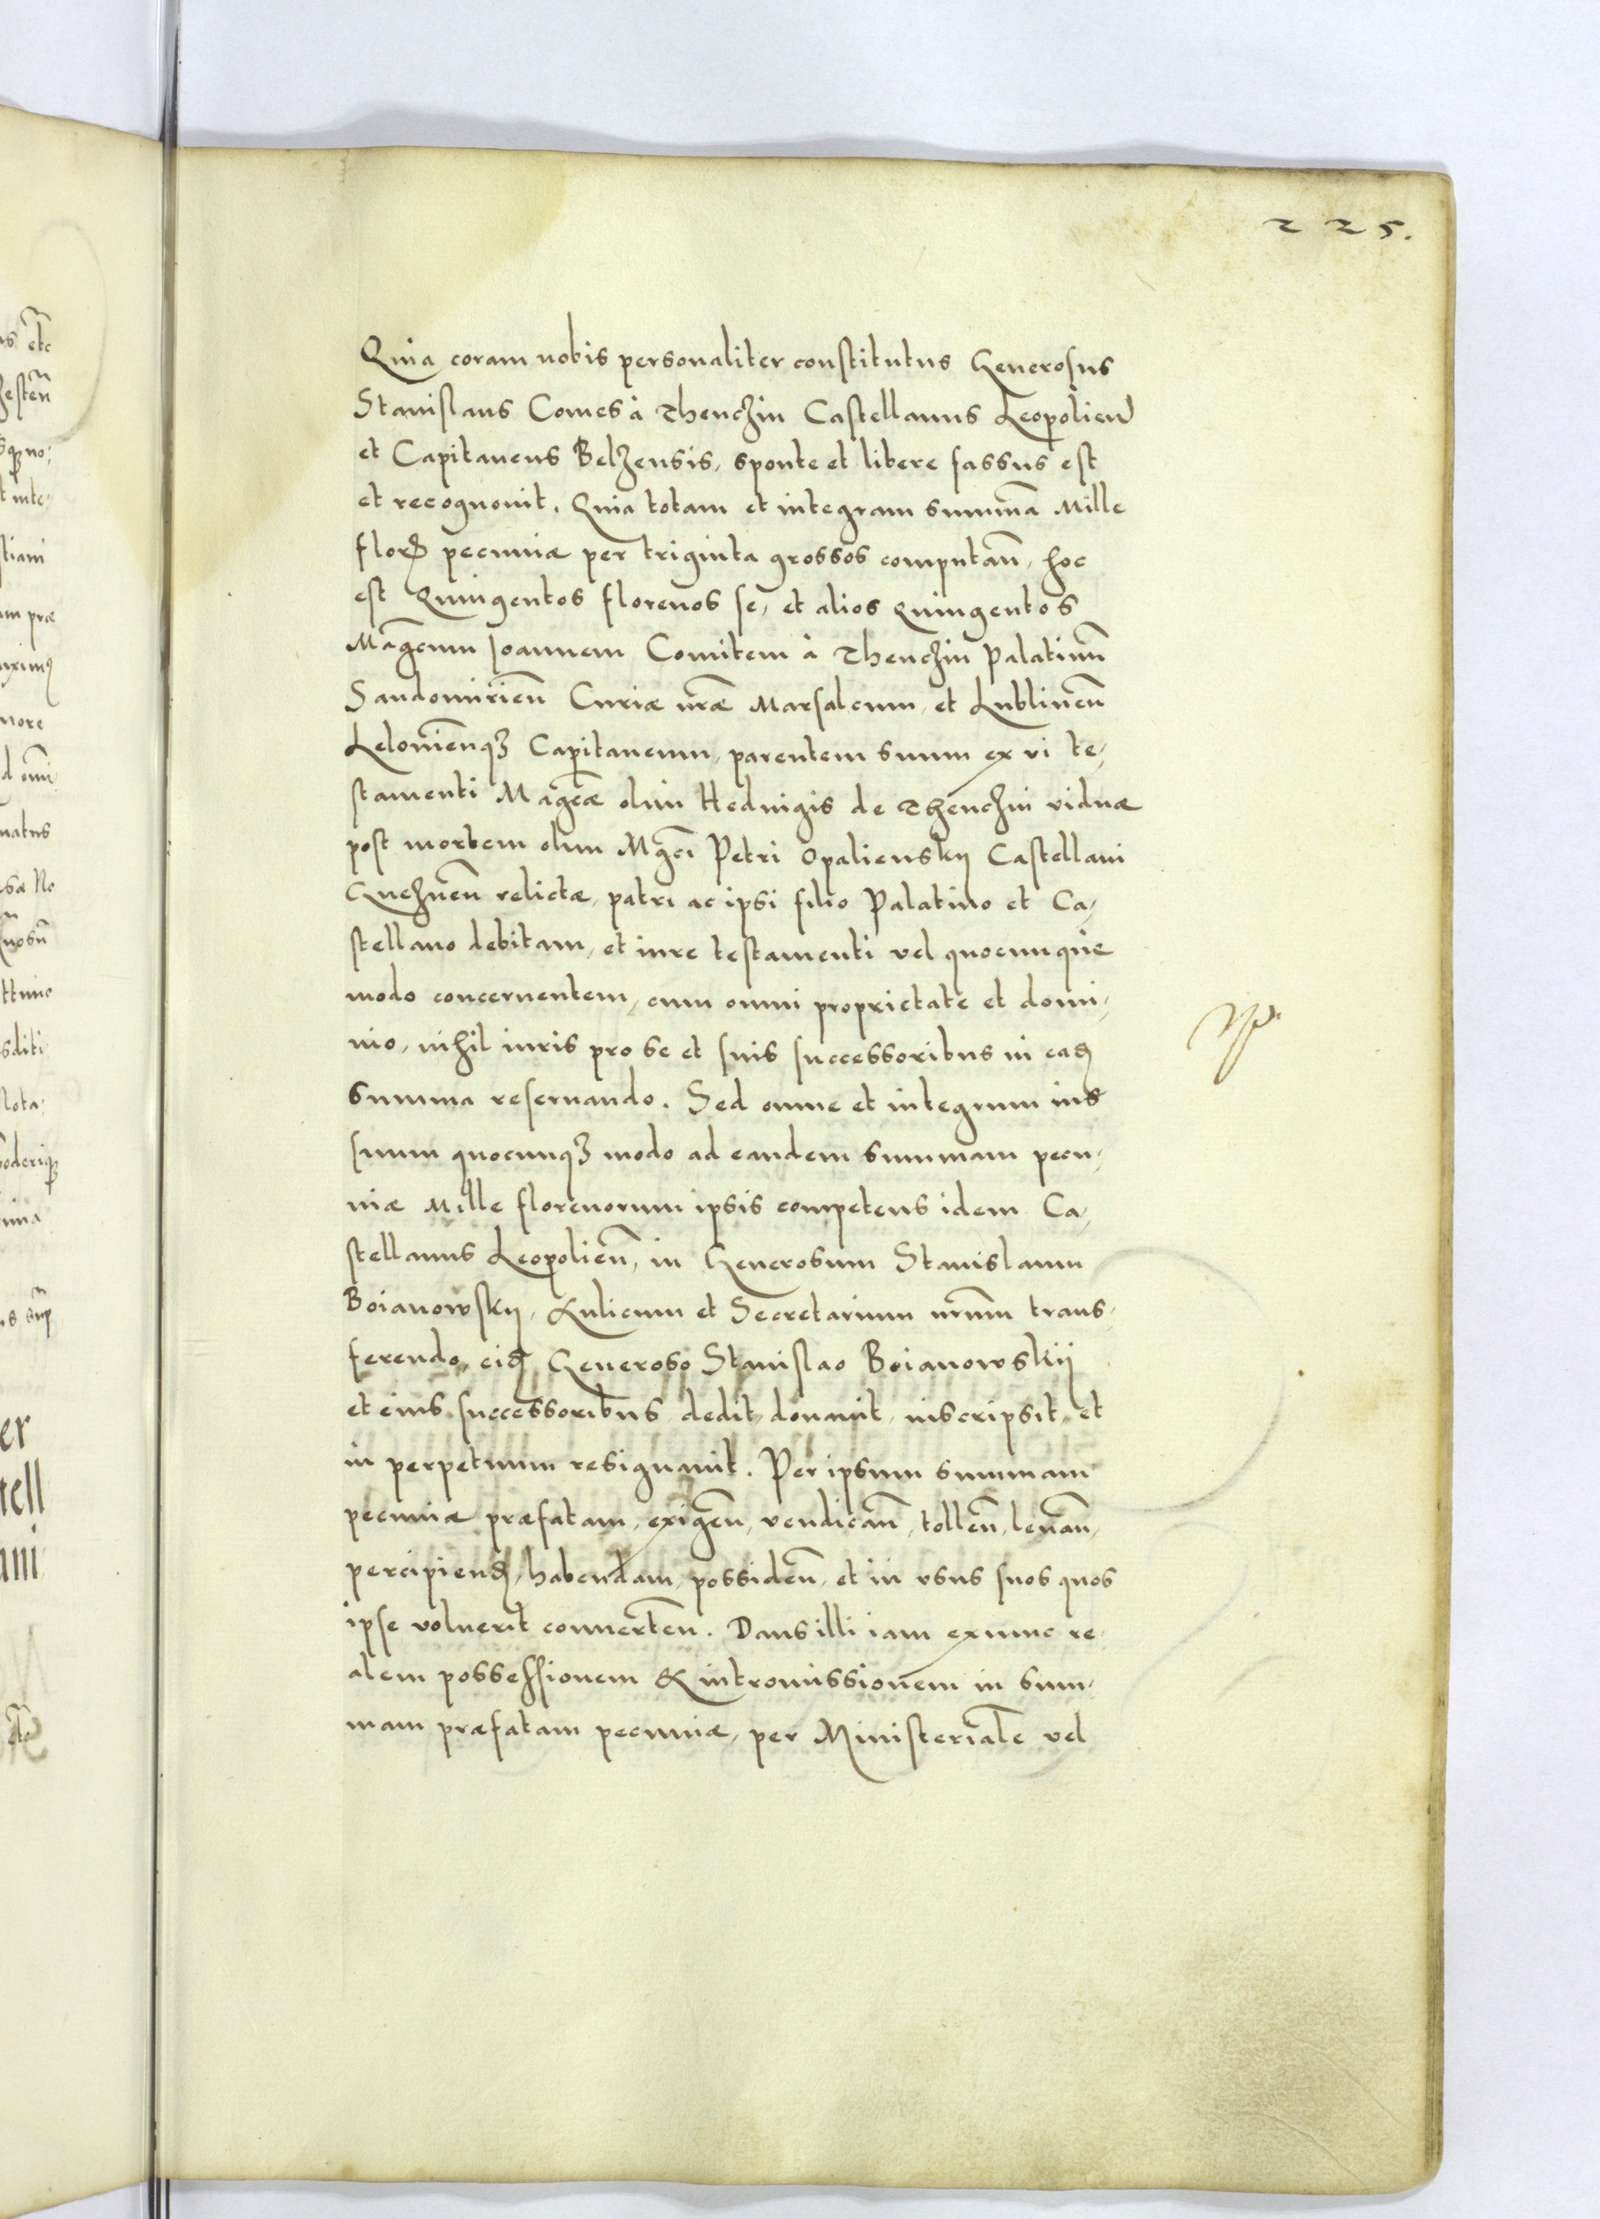 225.
Quia coram nobis personaliter constitutus Generosus
Stanislaus Comes à Thenczin Castellanus Leopolien
et Capitaneus Belzensis, sponte et libere fassus est
et recognouit. Quia totam et integram summã Mille
floř pecuniæ per triginta grossos computañ, hoc
est Quingentos florenos se, et alios quingentos
Mãgcum Joannem Comitem à Thenczin Palatinũ
Sandomirieñ Curiæ nřæ Marsalcum, et Lublineñ
Lelouieñqʒ Capitaneum, parentem suum ex vi te,
stamenti Mãgcæ olim Heduigis de Thenczin viduæ
post mortem olim Mgci Petri Opalienskij Castellani
Gneznẽn relictæ, patri ac ipsi filio Palatino et Ca,
stellano debitam, et iure testamenti vel quocunque
modo concernentem, cum omni proprietate et domi,
nio, nihil iuris pro se et suis successoribus in eadẽ
summa reseruando. Sed omne et integrum ius
suum quocunqʒ modo ad eandem summam pecu,
niæ Mille florenorum ipsis competens idem Ca,
stellanus Leopolieñ, in Generosum Stanislaum
Boianowskij, Aulicum et Secretarium nrũm trans,
ferendo, eidẽ Generoso Stanislao Boianowskij
et eius successoribus dedit, donauit, inscripsit, et
in perpetuum resignauit. Per ipsum summam
pecuniæ præfatam, exigeñ, vendicañ, tolleñ, leuañ,
percipiendẽ, habendam, possideñ, et in vsus suos quos
ipse voluerit conuerteñ. Dans illi iam exnunc re,
alem possessionem & intromissionem in sum,
mam præfatam pecuniæ, per Ministerialẽ vel